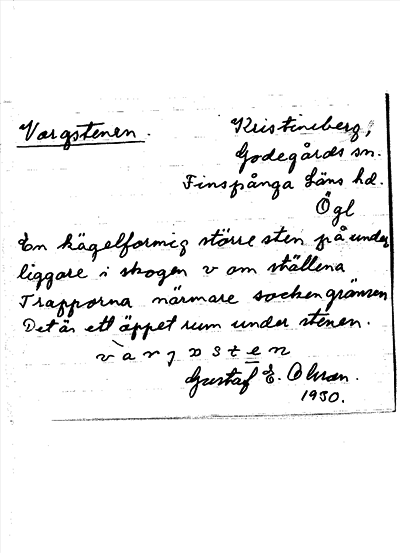 Vargstenen.
Kristineberg,
Godegårds sn.
Finspånga Läns hd.
Ögl
En kägelformig större sten på under
liggare i skogen v om ställena
Trapporna närmare sockengränsen
Det är ett öppet rum under stenen.
vàrgsten
Gustaf E. Olsson.
1930.